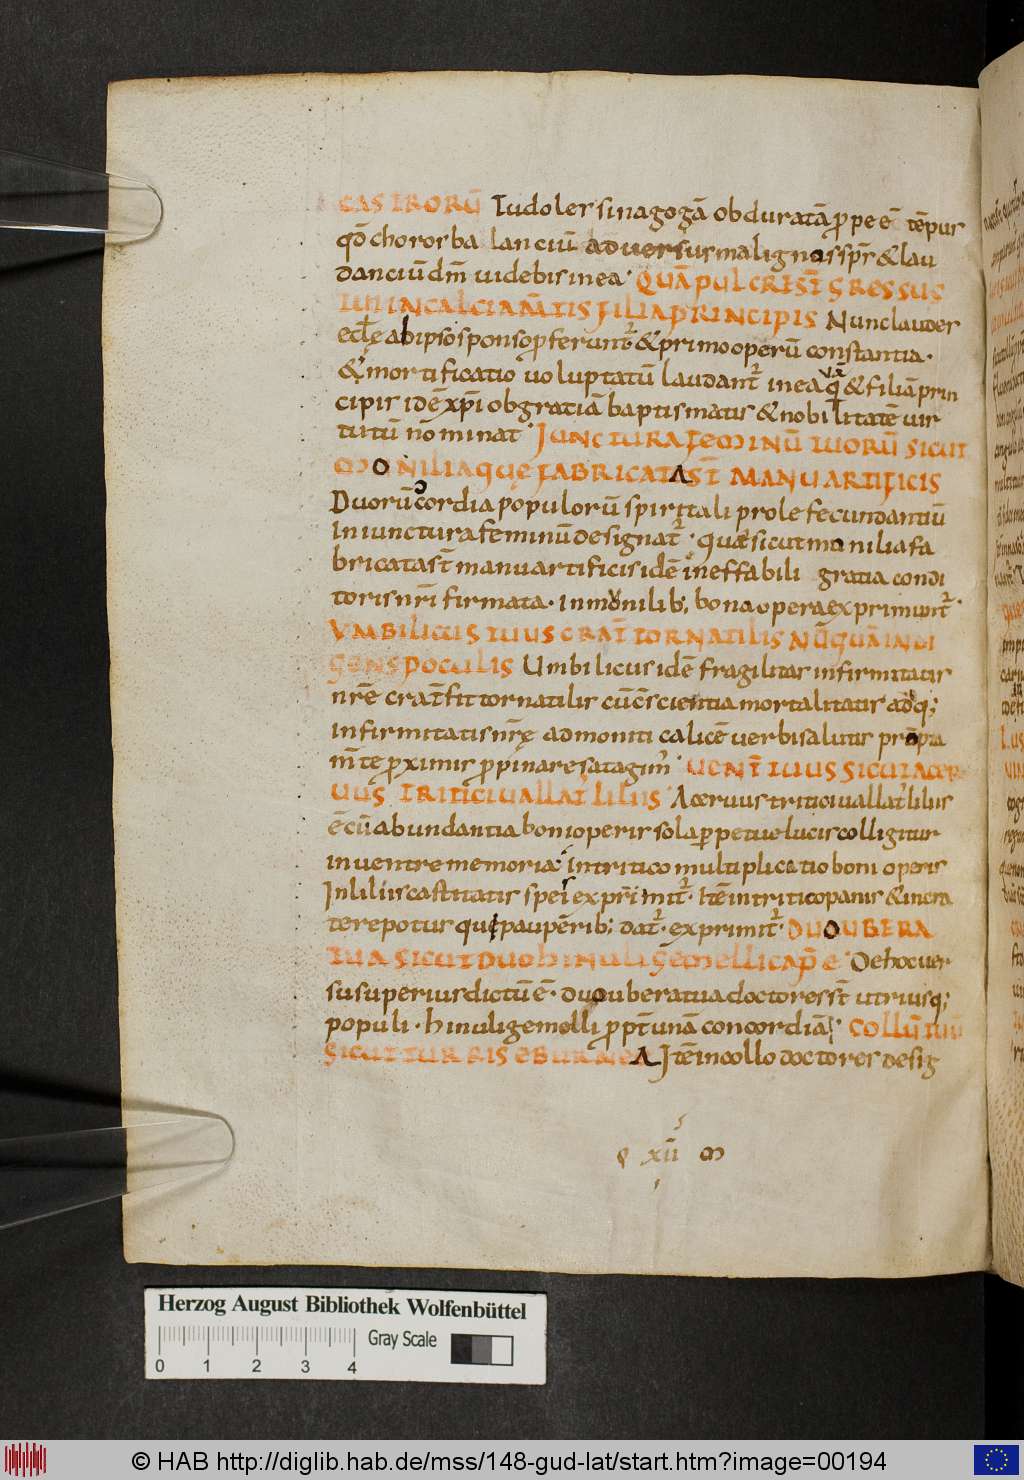 CASTRORŪ Tu doles sinagogā obduratā ꝓpe ē tēpus
qđ choros ba lanciū aduersus malignos spr̄ & lau
danciū dm̄ uidebis in ea· QUĀ PULCRI ST̄ GRESSUS
TUI IN CALCIAM̄TIS FILIA PRINCIPIS Nunc laudes
eccłę ab ipso sponso ꝓferunt᷑ & primo operū constantia·
& mortificatio uoluptatū laudant᷑ in ea q̄ & filiā prin
cipis idē xp̄i ob gratiā baptismatis & nobilitatē uir
tutū nominat· IUNCTURA FEMINŪ TUORŪ SICUT
MONILIA QUE FABRICATA ST̄ MANU ARTIFICIS
Duorū cordia populorū spiritali prole fecundantiū
In iunctura feminū designat᷑· quae sicut monilia fa
bricata st̄ manu artificis idē ineffabili gratia condi
toris nr̄i firmata· in monilib; bona opera exprimunt᷑·
VMBILICUS TUUS CRAT̄ TORNATILIS NŪQUĀ INDI
GENS POCULIS Umbilicus idē fragilitas infirmitatis
nr̄e crat̄ fit tornatilis cū c̄scientia mortalitatis adq;
infirmitatis nr̄ę admoniti calicē uerbi salutis prōpta
m̄te ꝓximis ꝓpinare satagim᷒· UENT̄ TUUS SICUT ACER
UUS TRITICI UALLAT᷒ LILIIS· Aceruus tritici uallat᷒ liliis
ē cū abundantia boni operis sola ꝑpetuę lucis colligitur
in uentre memoria· in tritico multiplicatio boni operis
In liliis castitatis spei exprimit᷑· Itē in tritico panis & in cra
tere potus que paupērib; dat᷑· exprimit᷑· DUO UBERA
TUA SICUT DUO HINULI GEMELLI CAPRĒ· De hoc uer
su superius dictū ē· duo ubera tua doctores st̄ utriusq;
populi· hinuli gemelli ꝓpt̄ unā concordiā· COLLŪ TUŪ
SICUT TURRIS EBURNEA Itē in collo doctores desig
xii
Herzog August Bibliothek Wolfenbüttel
Gray Scale
0 1 2 3 4
© HAB http://diglib.hab.de/mss/148-gud-lat/start.htm?image=00194